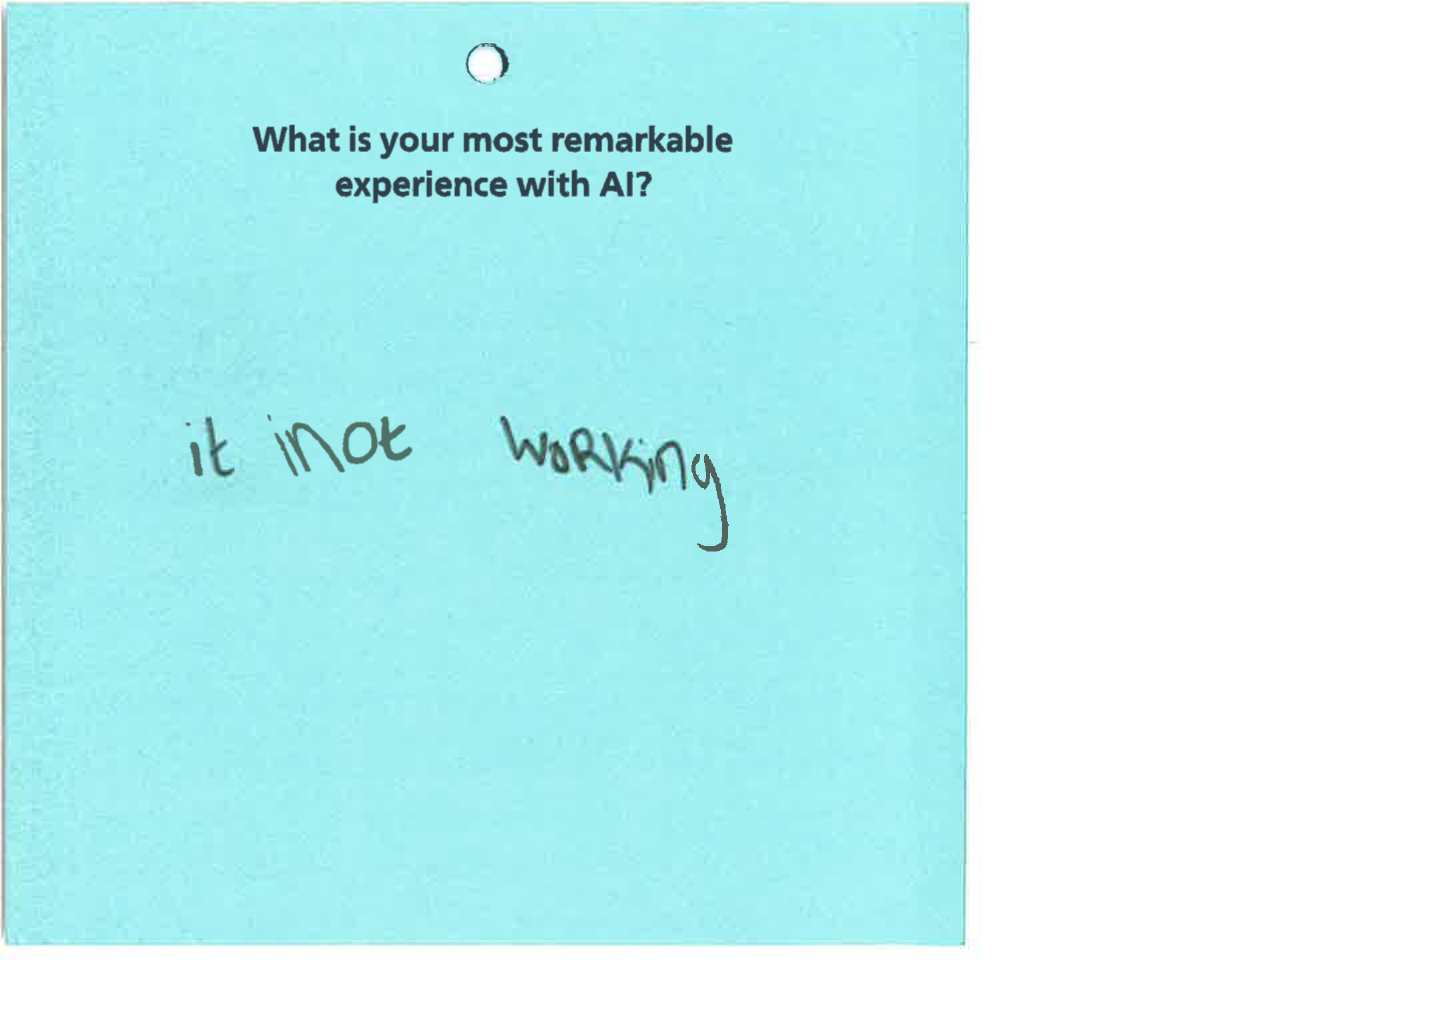 What is your most remarkable
experience with AI?
it inot working